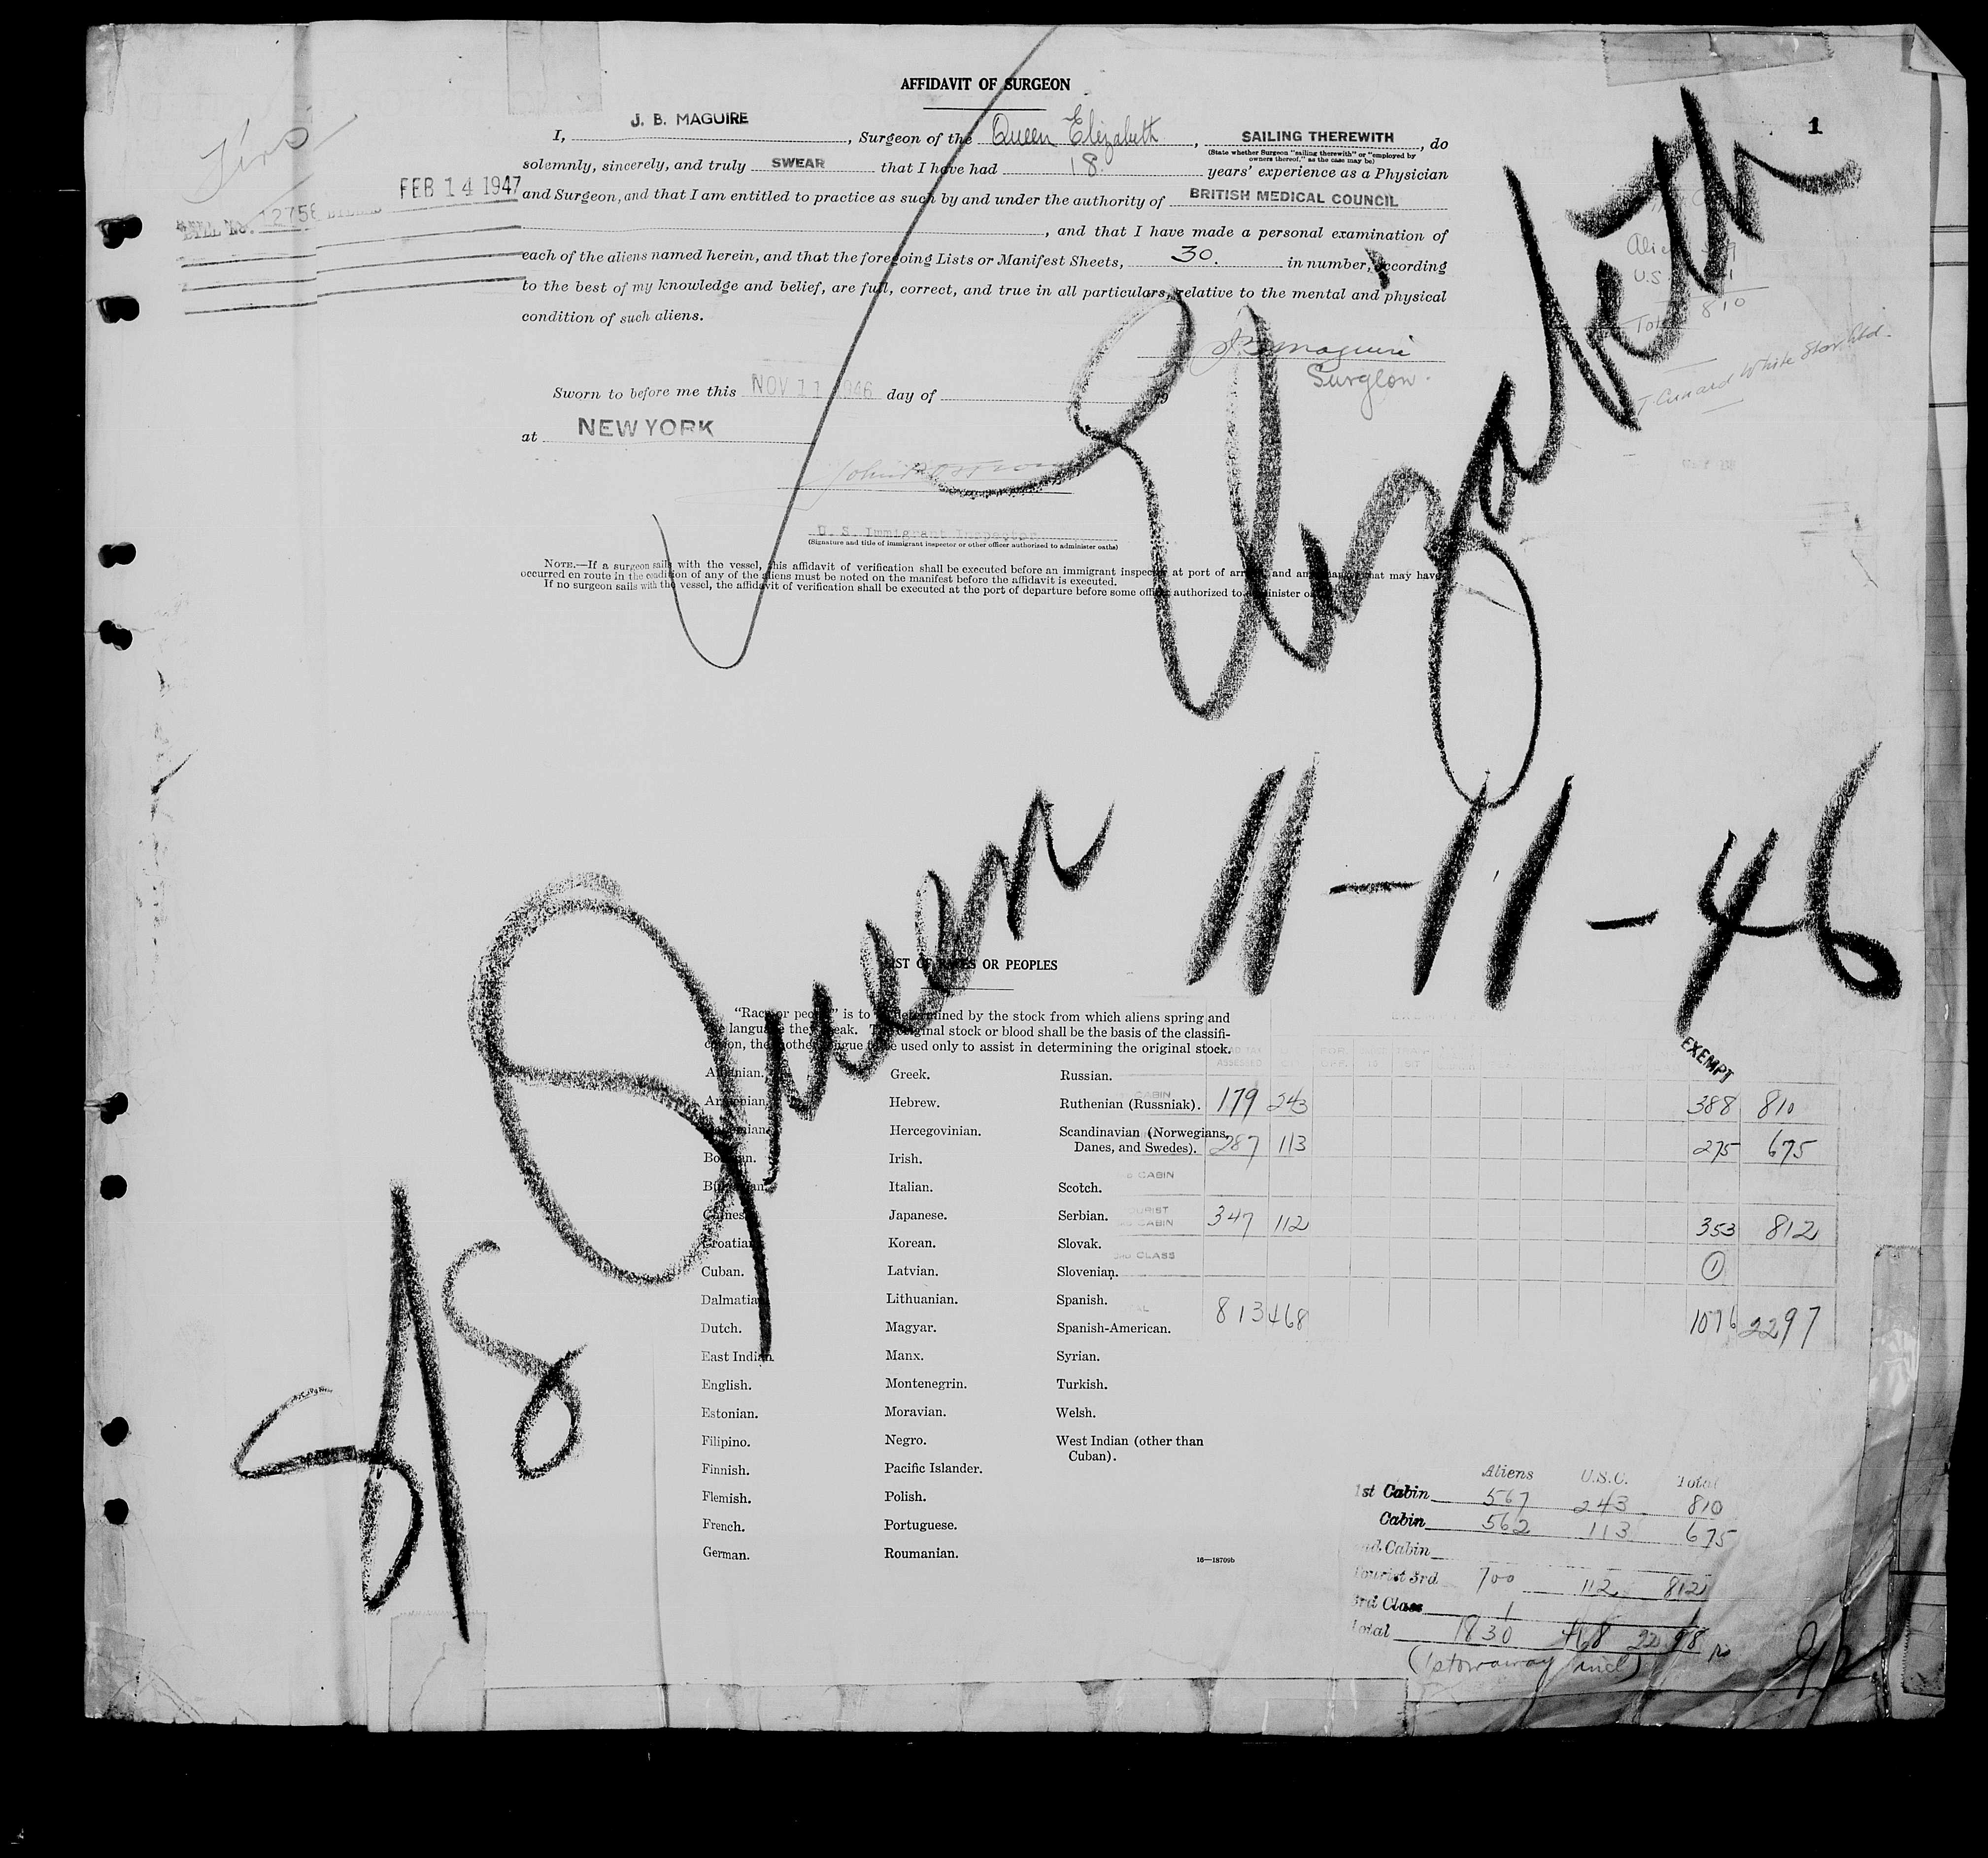 AFFIDAVIT OF SURGEON
1
I, J. B. MAGUIRE, Surgeon of the Queen Elizabeth, SAILING THEREWITH, do
(State whether Surgeon "sailing therewith" or "employed by
owners thereof," as the case may be)
solemnly, sincerely, and truly SWEAR that I have had 18. years' experience as a Physician
FEB 14 1947
and Surgeon, and that I am entitled to practice as such by and under the authority of BRITISH MEDICAL COUNCIL
, and that I have made a personal examination of
each of the aliens named herein, and that the foregoing Lists or Manifest Sheets, 30. in number, according
to the best of my knowledge and belief, are full, correct, and true in all particulars, relative to the mental and physical
condition of such aliens.
810
Cunard White Star Ltd.
J B Maguire
Surgeon.
Sworn to before me this NOV 11 1946 day of
at NEW YORK
U. S. Immigrant Inspector
(Signature and title of immigrant inspector or other officer authorized to administer oaths)
NOTE.—If a surgeon sails with the vessel, this affidavit of verification shall be executed before an immigrant inspector at port of arrival and any changes that may have
occurred en route in the condition of any of the aliens must be noted on the manifest before the affidavit is executed.
If no surgeon sails with the vessel, the affidavit of verification shall be executed at the port of departure before some officer authorized to administer
S/S Queen Elizabeth
11-11-46
LIST OF RACES OR PEOPLES
"Race or people" is to be determined by the stock from which aliens spring and
the language they speak. The original stock or blood shall be the basis of the classifi-
cation, the mother tongue to be used only to assist in determining the original stock.
EXEMPT
Albanian. Greek. Russian.
Armenian. Hebrew. Ruthenian (Russniak). CABIN 179 243 388 810
Bohemian. Hercegovinian. Scandinavian (Norwegians,
Danes, and Swedes). 287 113 275 675
Bosnian. Irish.
CABIN
Bulgarian. Italian. Scotch.
Chinese. Japanese. Serbian. TOURIST CABIN 347 112 353 812
Croatian. Korean. Slovak.
3RD CLASS 1
Cuban. Latvian. Slovenian.
Dalmatian. Lithuanian. Spanish.
TOTAL 813 468 1016 2297
Dutch. Magyar. Spanish-American.
East Indian. Manx. Syrian.
English. Montenegrin. Turkish.
Estonian. Moravian. Welsh.
Filipino. Negro. West Indian (other than
Cuban).
Finnish. Pacific Islander.
Flemish. Polish.
French. Portuguese.
German. Roumanian.
16—18709b
Aliens U.S.C. Total
1st Cabin 567 243 810
Cabin 562 113 675
2nd Cabin
Tourist 3rd 700 112 812
3rd Class 1 1
Total 1830 468 2298
(1 stowaway incl)